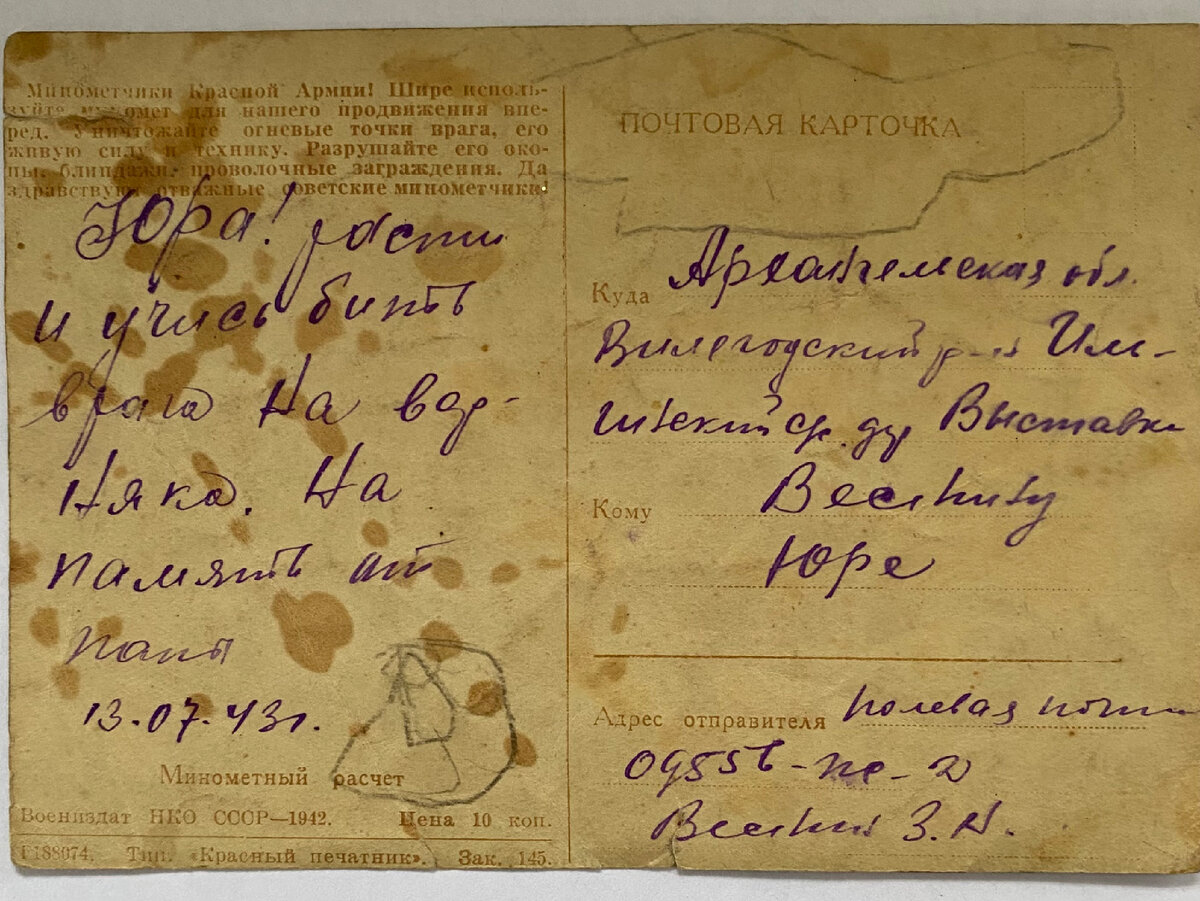 Минометчики Красной Армии! Шире исполь-
зуйте миномет для нашего продвижения впе-
ред. Уничтожайте огневые точки врага, его
живую силу и технику. Разрушайте его око-
пы, блиндажи, проволочные заграждения. Да
здравствуют отважные советские минометчики!
Юра! расти
и учись бить
врага на вер-
няка. На
память от
папы
13.07.43г.
Минометный расчет
Воениздат НКО СССР—1942. Цена 10 коп.
Г188074. Тип. «Красный печатник». Зак. 145.
ПОЧТОВАЯ КАРТОЧКА
Куда Архангельская обл.
Вилегодский р-н Ил-
ский ду Выставка
Кому Веснину
Юре
Адрес отправителя полевая почта
Веснин З.Н.